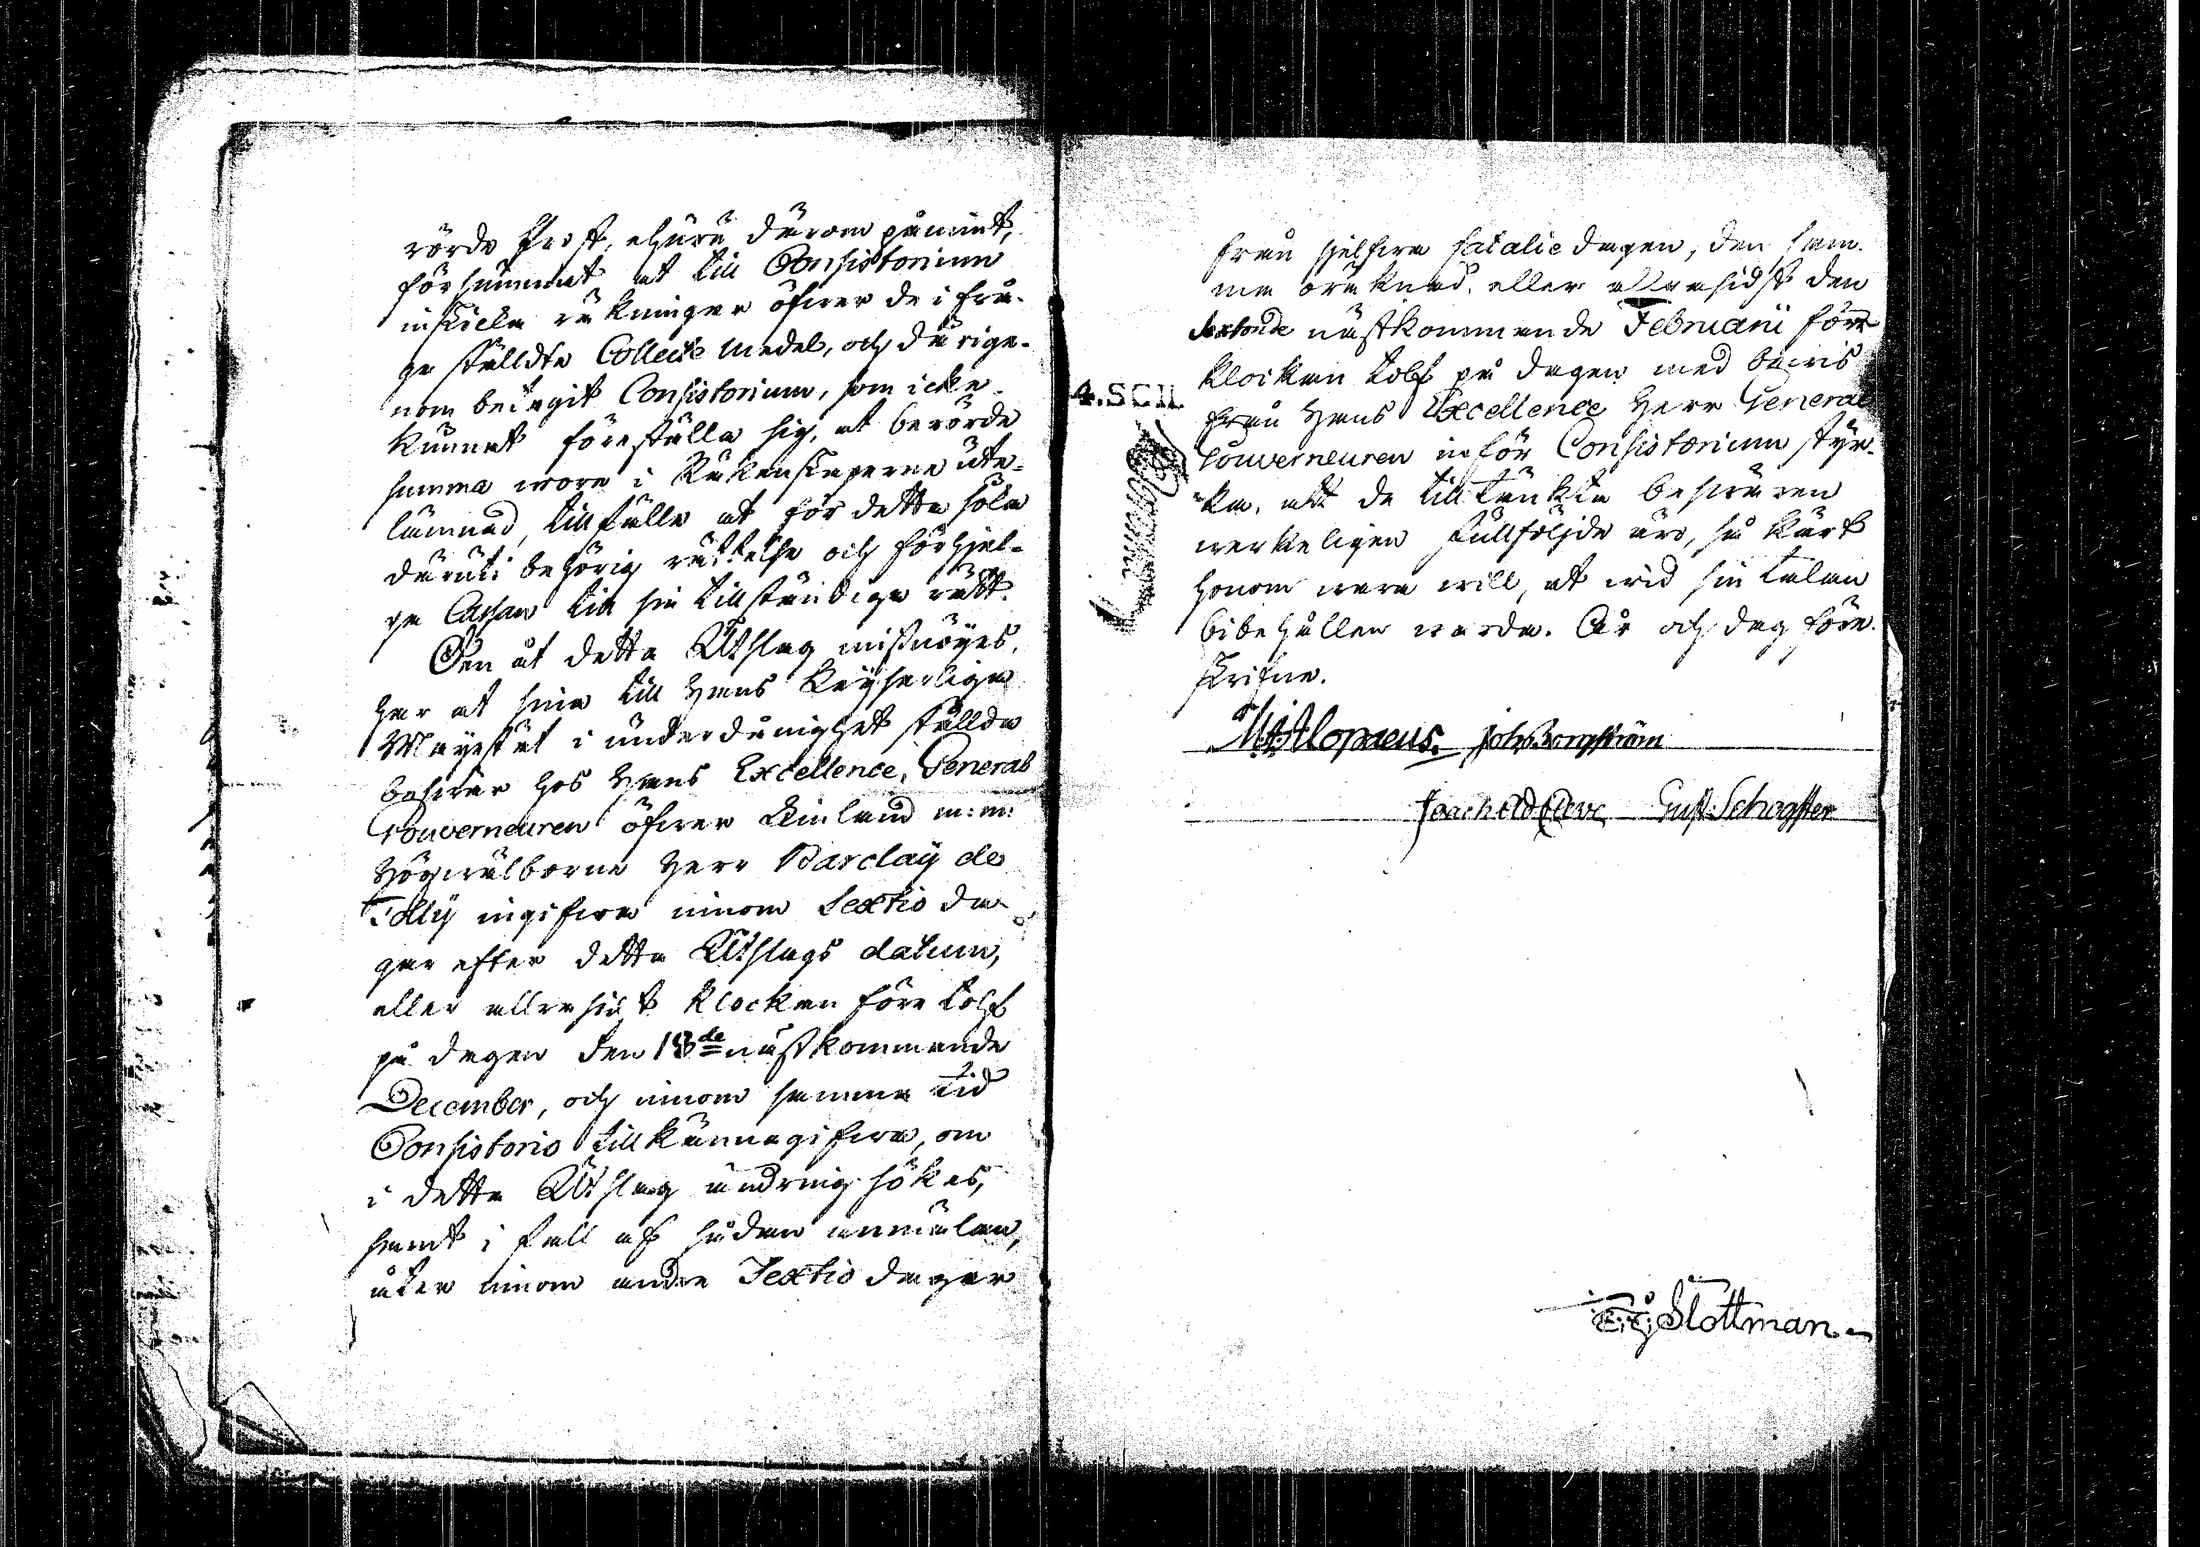 rörde Prost, ehuru därom påmint,
försummat at till Consistorium
insända räkningar öfwer de i frå-
ga ställdta Collecte medel, och därige-
nom betagit Consistorium, som icke
kunnat föreställa sig, at berörde
summa wore i Räkenskaperne ute-
lämnad, tillfälle at för detta söka
däruti behörig rättelse och förhjel-
pa Cassan till sin tillständiga rätt.
Den åt detta Utslag missnöyes,
har at sina till Hans Keyserliga
Mayestät i underdånighet ställda
beswär hos Hans Excellence, General
Gouverneuren öfwer Finland m: m:
Högwälborne Herr Barclaÿ de
Tollÿ ingifwa innom Sextio da-
gar efter detta Utslags datum,
eller allrasidst klockan före tolf
på dagen den 18de nästkommande
December, och innom samma tid
Consistorio tillkännagifwa, om
i detta Utslag ändring sökes,
samt i fall af sådan anmälan,
åter innom andra Sextio dagar
från sjelfwa fatalie dagen, den sam-
ma oräknad, eller allrasidst den
sextonde nästkommande Februarii före
klockan tolf på dagen med bewis
från Hans Excellence Herr General
Gouverneuren inför Consistorium styr-
ka, att de tilltänkta beswären
werkeligen fullföljde äro, så kärt
honom wara will, at wid sin talan
bibehållen warda. År och dag före-
skrifne.
4. SCIL
M: Alopaeus. Joh: Borgström
Joach Ad Cleve Gust: Schogster
E: G: Slottman.